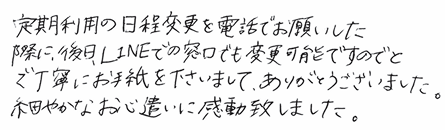 定期利用の日程変更を電話でお願いした
際に、後日、LINEでの窓口でも変更可能ですのでと
ご丁寧にお手紙を下さいまして、ありがとうございました。
細やかなお心遣いに感動致しました。